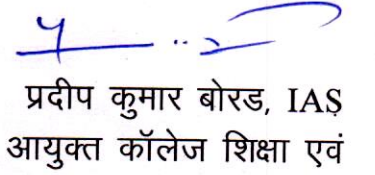 प्रदीप कुमार बोरड, IAS
आयुक्त कॉलेज शिक्षा एवं